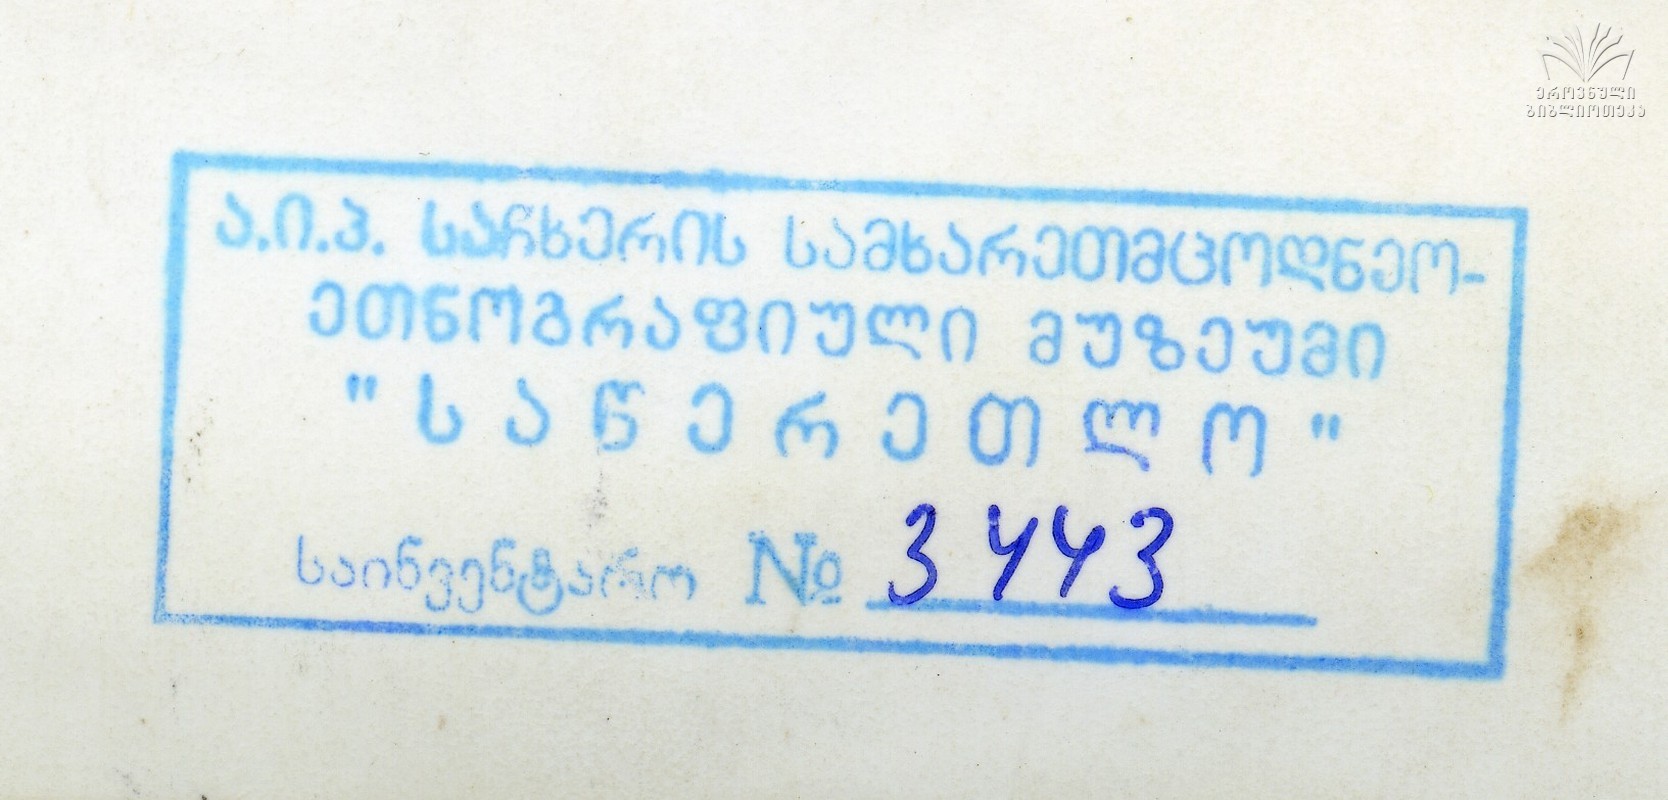 ეროვნული
ბიბლიოთეკა
ა.ი.პ. საჩხერის სამხარეთმცოდნეო-
ეთნოგრაფიული მუზეუმი
"საწერეთლო"
საინვენტარო № 3443